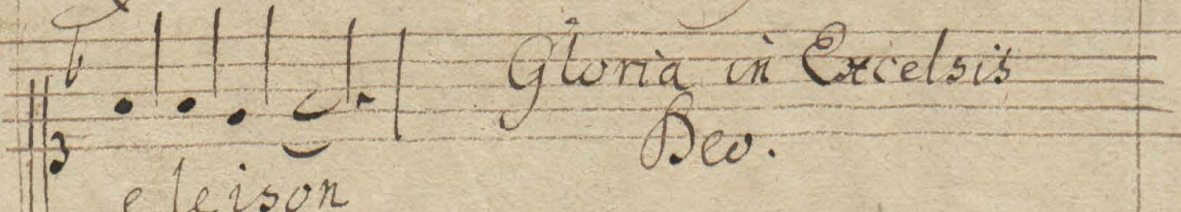 Gloria in Excelsis
Deo.
e le ison